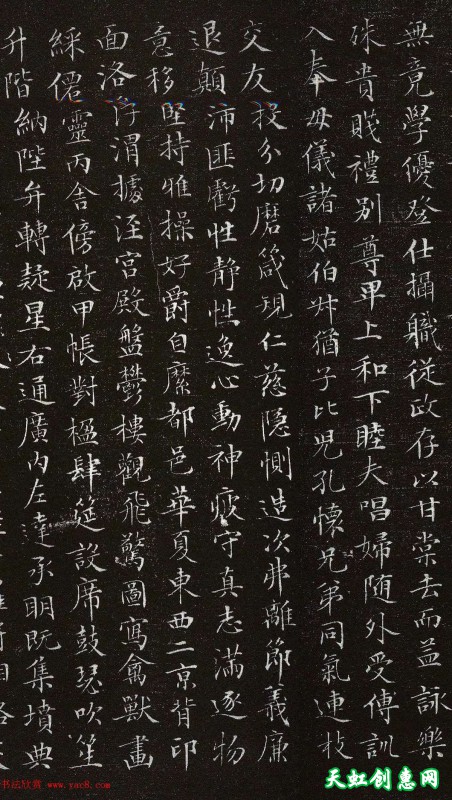 無竟學優登仕攝職從政存以甘棠去而益詠樂
殊貴賤禮別尊卑上和下睦夫唱婦随外受傅訓
入奉母儀諸姑伯叔猶子比兒孔懷兄弟同氣連枝
交友投分切磨箴規仁慈隱惻造次弗離節義廉
退顛沛匪虧性静情逸心動神疲守真志滿逐物
意移堅持雅操好爵自縻都邑華夏東西二京背邙
面洛浮渭據涇宮殿盤鬱樓觀飛驚圖寫禽獸畫
綵僊靈丙舍傍啟甲帳對楹肆筵設席鼓瑟吹笙
升階納陛弁轉疑星右通廣内左達承明既集墳典
书法欣赏 www.yac8.com
天虹创惠网